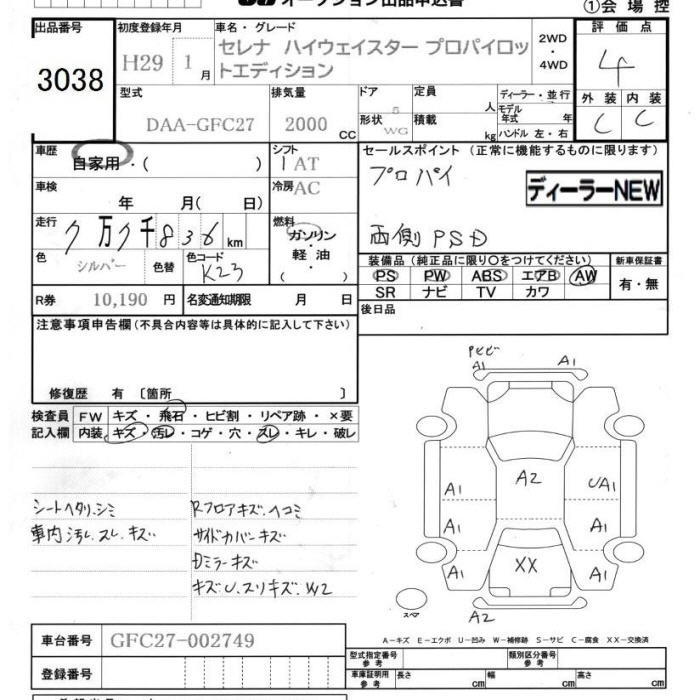 オークション出品申込書
①会場控
出品番号
3038
初度登録年月
H29 1月
車名・グレード
セレナ ハイウェイスター プロパイロッ
トエディション
2WD
・
4WD
評価点
4
外装 内装
C C
型式
DAA-GFC27
排気量
2000 CC
ドア
5
形状
WG
定員
人
積載
kg
ディーラー・並行
モデル
年式 年
ハンドル 左・右
車歴
自家用・( )
シフト
AT
車検
年 月( 日)
冷房
AC
走行
7万7千836km
燃料
ガソリン
・
軽油
・
( )
色
シルバー
色替
色コード
K23
R券
10,190 円
名変通知期限 月 日
セールスポイント (正常に機能するものに限ります)
プロパイ
ディーラーNEW
両側PSD
装備品 (純正品に限り○をつけてください)
PS PW ABS エアB AW
SR ナビ TV カワ
新車保証書
有・無
後日品
注意事項申告欄(不具合内容等は具体的に記入して下さい)
修復歴 有〔箇所 〕
検査員
記入欄
FW キズ・飛石・ヒビ割・リペア跡・×要
内装 キズ・汚レ・コゲ・穴・スレ・キレ・破レ
シートヘタリ.シミ
車内汚レ.スレ.キズ
Rフロアキズ.ヘコミ
サイドカバーキズ
Dミラーキズ
キズ.U.スリキズ.W2
A1
A1
A2
A1
UA1
A1
A1
A1
XX
A1
A2
スペア
A-キズ E-エクボ U-凹み W-補修跡 S-サビ C-腐食 XX-交換済
車台番号
GFC27-002749
登録番号
型式指定番号
参考
類別区分番号
参考
車庫証明用
参考
長さ cm
幅 cm
高さ cm